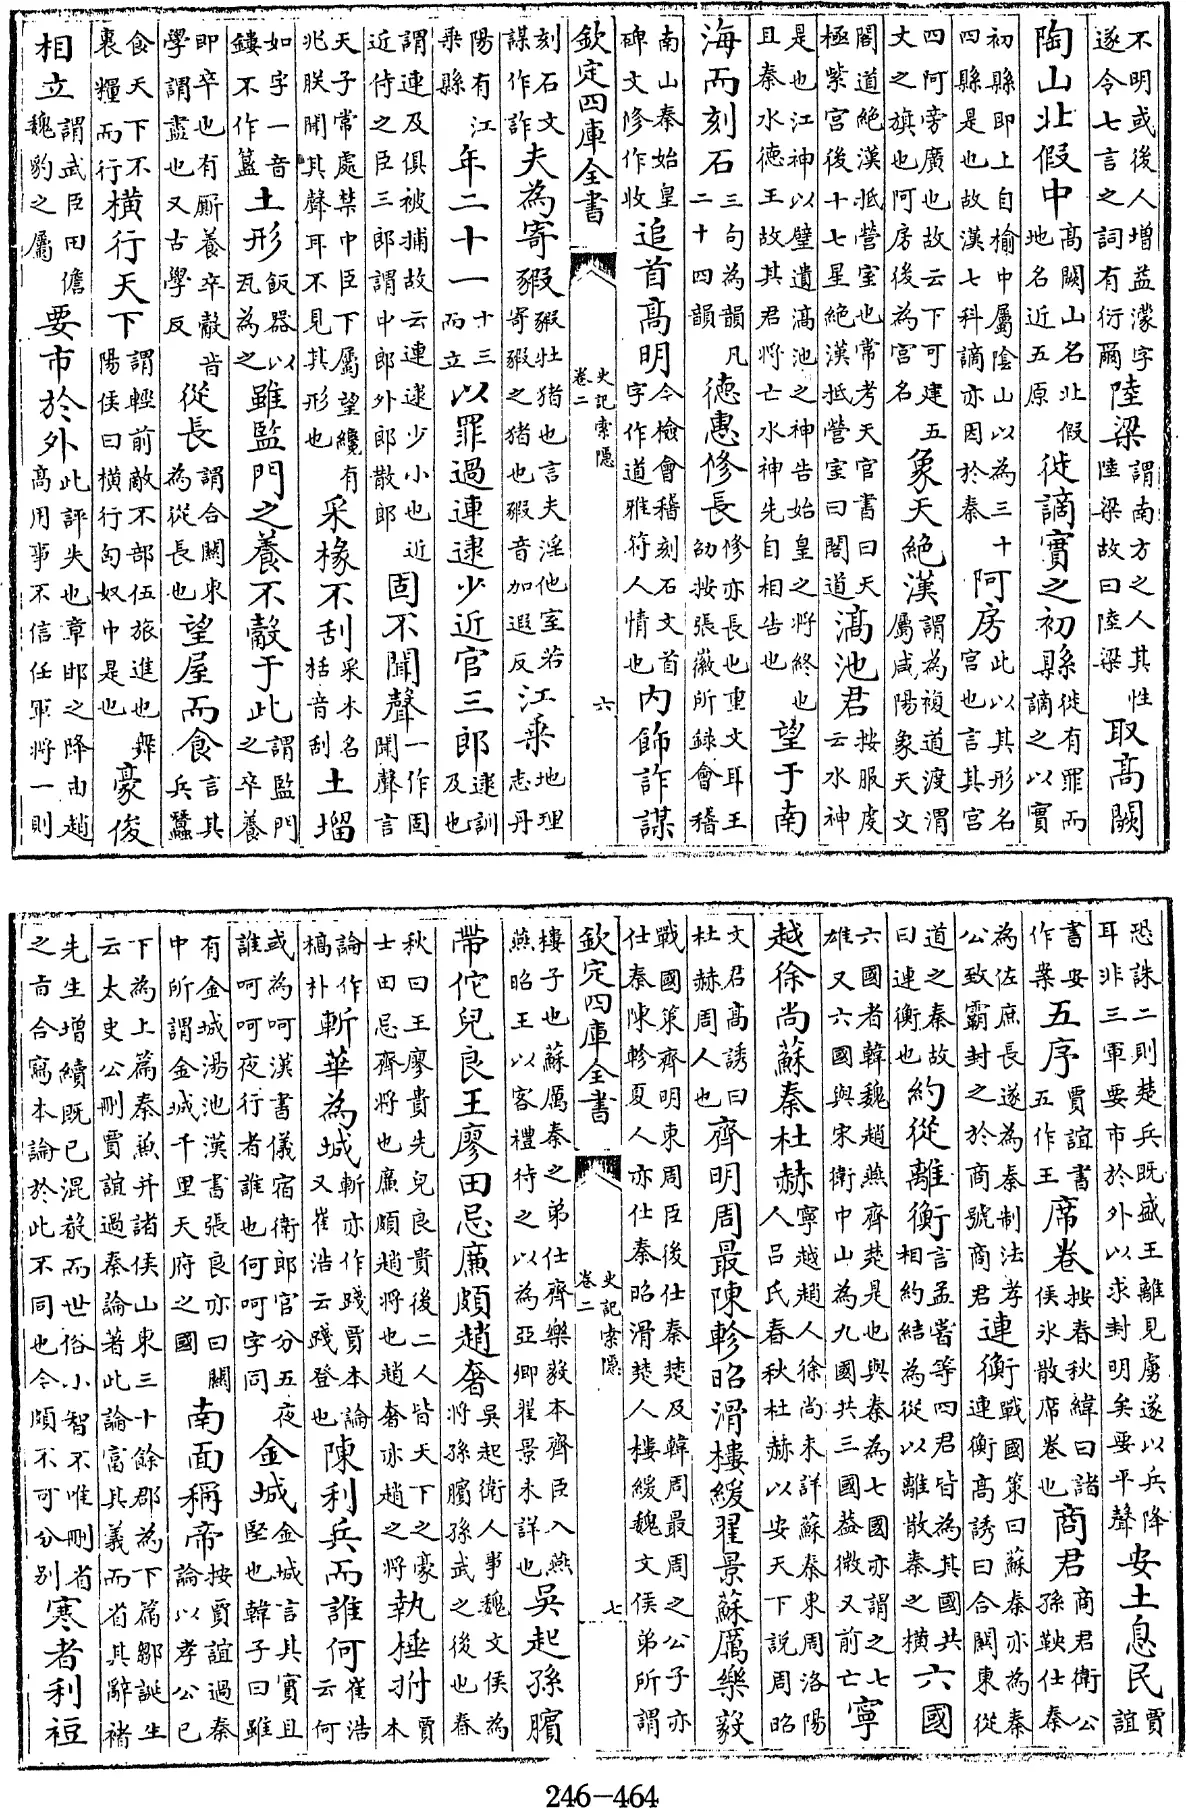 不明或後人增益濛字遂令七言之詞有衍爾陸梁謂南方之人其性陸梁故曰陸梁取高闕
陶山北假中高闕山名北假地名近五原徙謫實之初縣徙有罪而謫之以實
初縣即上自榆中屬陰山以為三十四縣是也故漢七科謫亦因於秦阿房此以其形名宮也言其宮
四阿旁廣也故云下可建五丈之旗也阿房後為宮名象天絕漢謂為複道渡渭屬咸陽象天文
閣道絕漢抵營室也常考天官書曰天極紫宮後十七星絕漢抵營室曰閣道滈池君按服虔云水神
是也江神以璧遺滈池之神告始皇之將終也且秦水德王故其君將亡水神先自相告也望于南
海而刻石三句為韻凡二十四韻德惠修長修亦長也重文耳王劭按張徽所錄會稽
南山秦始皇碑文修作收追首高明今檢會稽刻石文首字作道雅符人情也内飾詐謀
欽定四庫全書 史記索隱 卷二 六
刻石文謀作詐夫為寄豭豭牡猪也言夫淫他室若寄豭之猪也豭音加遐反江乘地理志丹
陽有江乘縣年二十一十三而立以罪過連逮少近官三郎逮訓及也
謂連及俱被捕故云連逮少小也近近侍之臣三郎謂中郎外郎散郎固不聞聲一作固聞聲言
天子常處禁中臣下屬望纔有兆朕聞其聲耳不見其形也采椽不刮采木名栝音刮土塯
如字一音鏤不作簋土形飯器以瓦為之雖監門之養不觳于此謂監門之卒養
即卒也有厮養卒觳音學謂盡也又古學反從長謂合關東為從長也望屋而食言其兵蠶
食天下不裹糧而行橫行天下謂輕前敵不部伍旅進也舞陽侯曰橫行匈奴中是也豪俊
相立謂武臣田儋魏豹之屬要市於外此評失也章邯之降由趙高用事不信任軍將一則
恐誅二則楚兵既盛王離見虜遂以兵降耳非三軍要市於外以求封明矣要平聲安土息民賈誼
書安作案五序賈誼書五作王席卷按春秋緯曰諸侯冰散席卷也商君商君衛公孫鞅仕秦
為佐庶長遂為秦制法孝公致霸封之於商號商君連衡戰國策曰蘇秦亦為秦連衡高誘曰合關東從
道之秦故曰連衡也約從離衡言孟嘗等四君皆為其國共相約結為從以離散秦之橫六國
六國者韓魏趙燕齊楚是也與秦為七國亦謂之七雄又六國與宋衛中山為九國共三國蓋微又前亡寧
越徐尚蘇秦杜赫寧越趙人徐尚未詳蘇秦東周洛陽人吕氏春秋杜赫以安天下說周昭
文君高誘曰杜赫周人也齊明周最陳軫昭滑樓緩翟景蘇厲樂毅
戰國策齊明東周臣後仕秦楚及韓周最周之公子亦仕秦陳軫夏人亦仕秦昭滑楚人樓緩魏文侯弟所謂
欽定四庫全書 史記索隱 卷二 七
樓子也蘇厲秦之弟仕齊樂毅本齊臣入燕燕昭王以客禮待之以為亞卿翟景未詳也吳起孫臏
帶佗兒良王廖田忌廉頗趙奢吳起衛人事魏文侯為將孫臏孫武之後也春
秋曰王廖貴先兒良貴後二人皆天下之豪士田忌齊將也廉頗趙將也趙奢亦趙之將執棰拊賈本
論作槁朴斬華為城斬亦作踐賈本論又崔浩云踐登也陳利兵而誰何崔浩云何
或為呵漢書儀宿衛郎官分五夜誰呵呵夜行者誰也何呵字同金城金城言其實且堅也韓子曰雖
有金城湯池漢書張良亦曰關中所謂金城千里天府之國南面稱帝按賈誼過秦論以孝公已
下為上篇秦兼并諸侯山東三十餘郡為下篇鄒誕生云太史公刪賈誼過秦論著此論富其義而省其辭褚
先生增續既已混殽而世俗小智不唯刪省之旨合寫本論於此不同也今頗不可分别寒者利裋
246-464